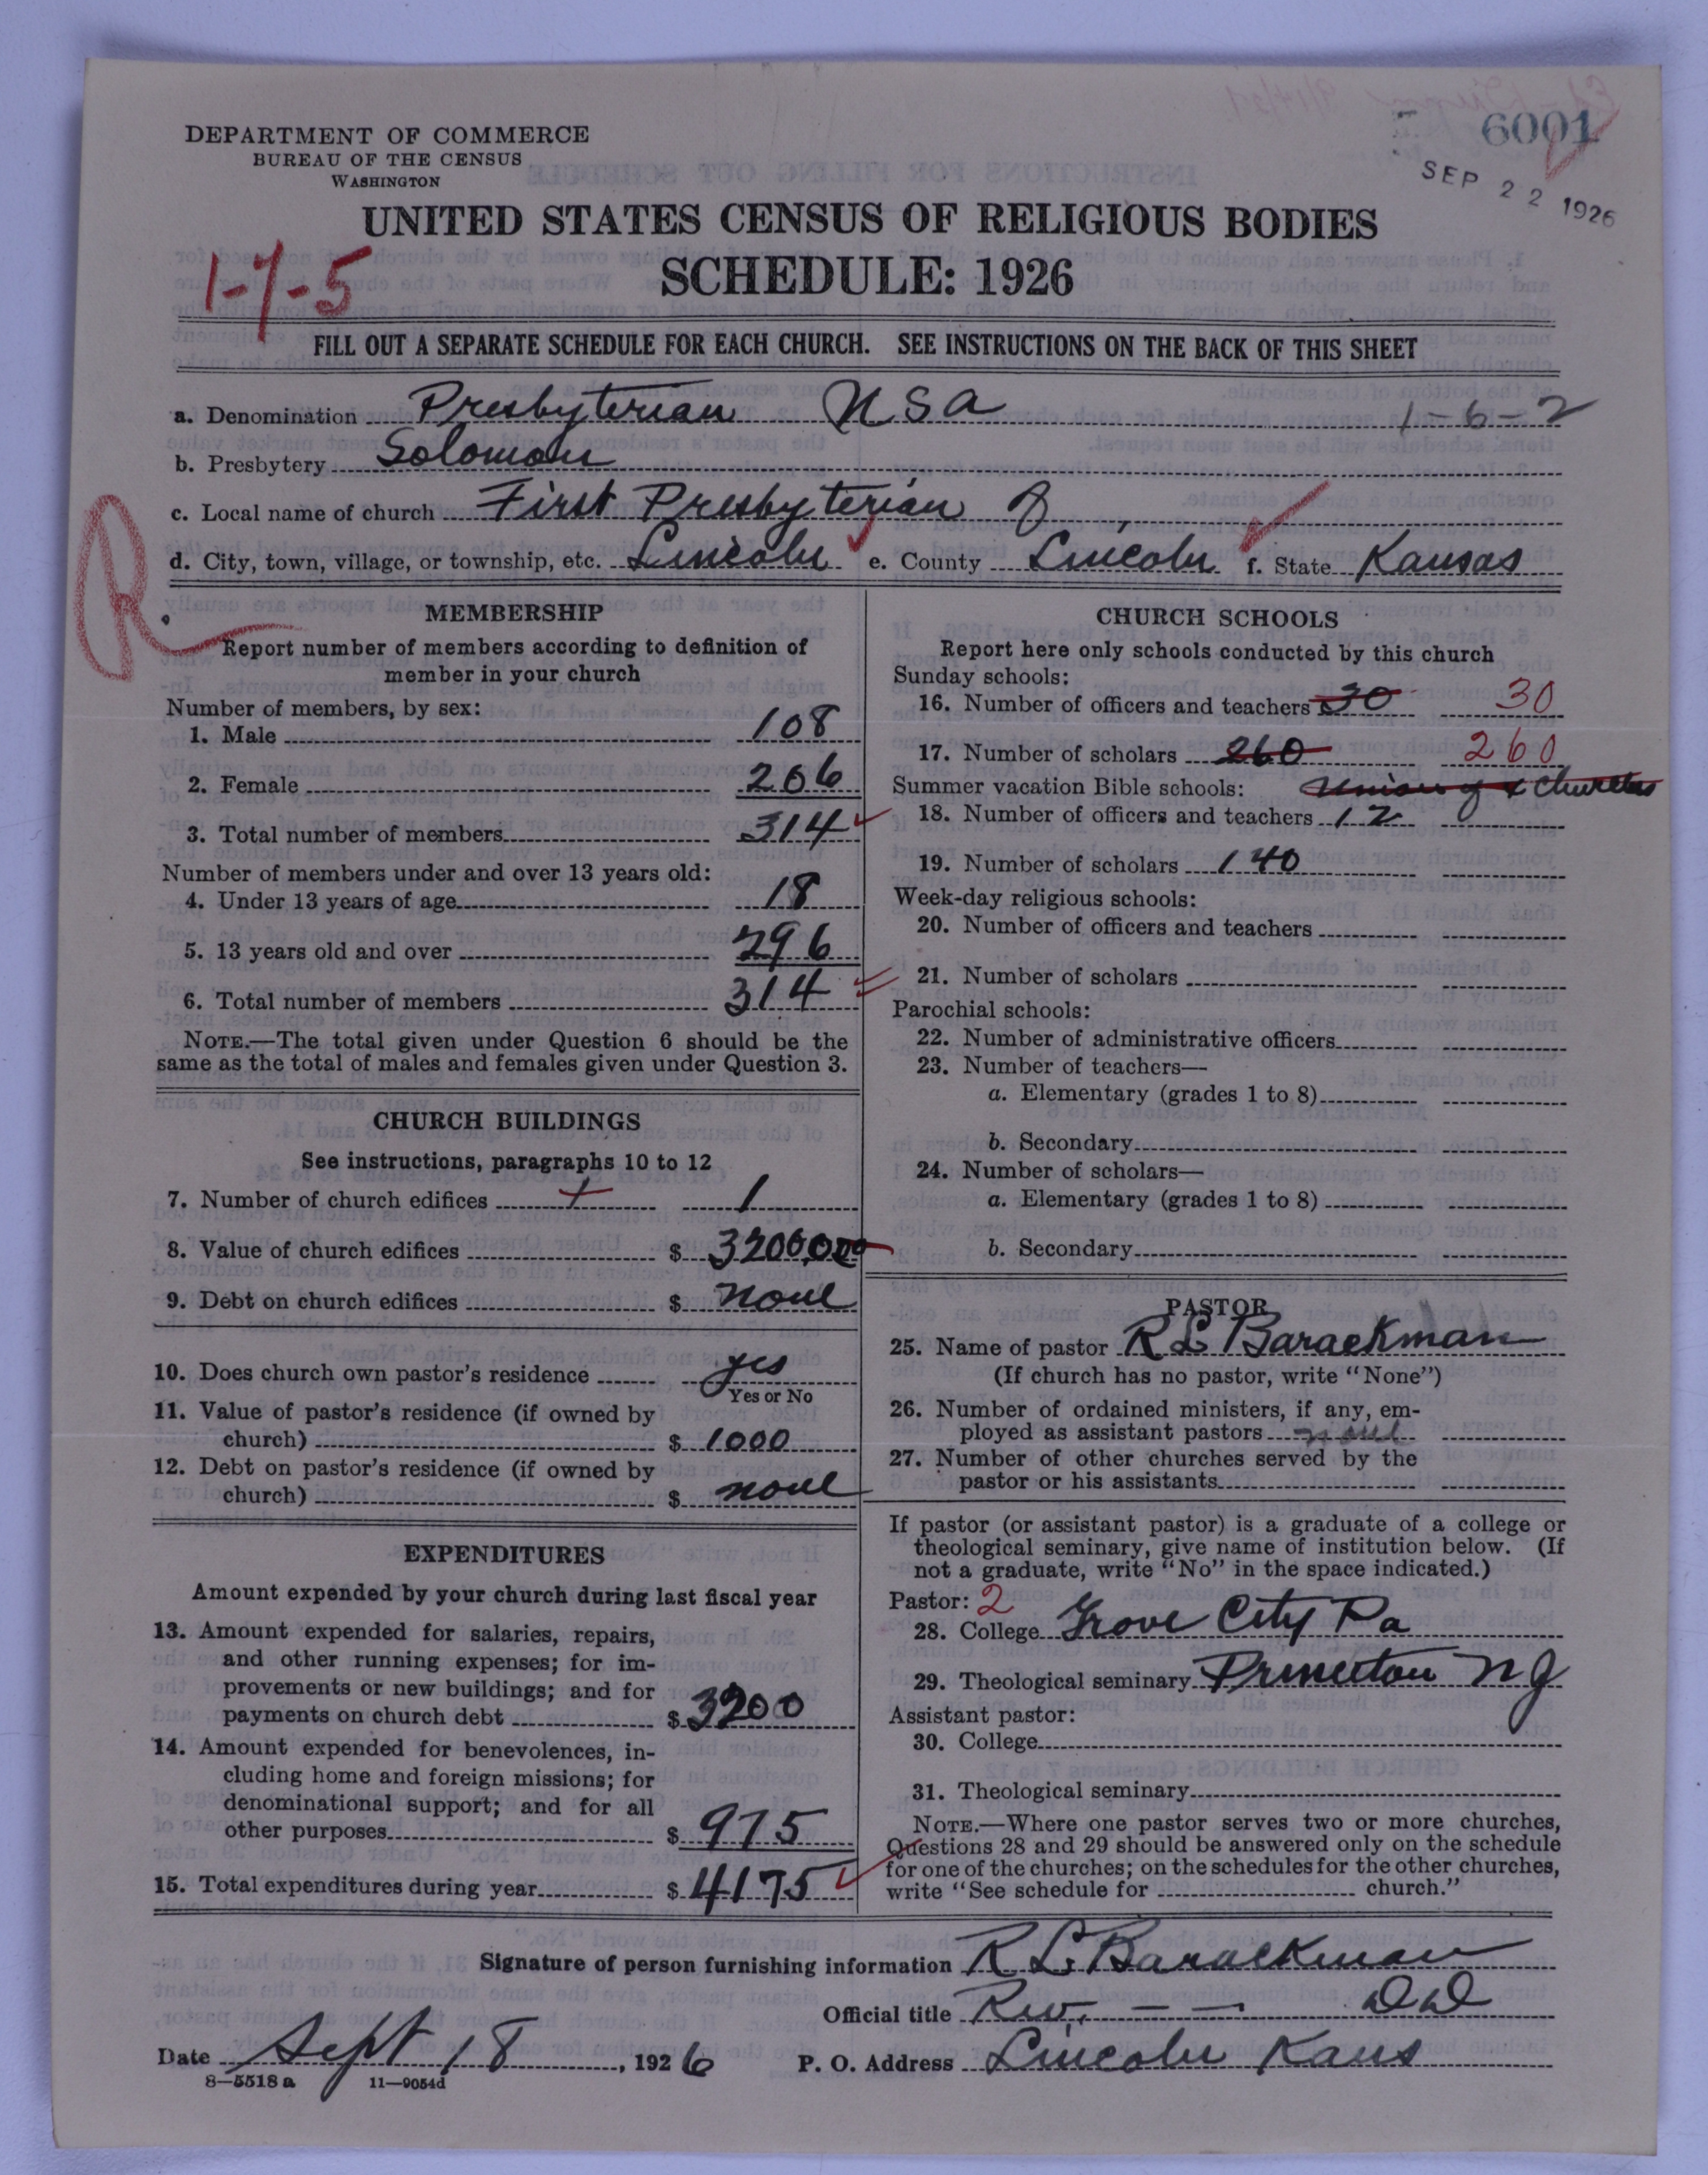 6001
SEP 22 1926
DEPARTMENT OF COMMERCE
BUREAU OF THE CENSUS
WASHINGTON
UNITED STATES CENSUS OF RELIGIOUS BODIES
SCHEDULE: 1926
1-7-5
FILL OUT A SEPARATE SCHEDULE FOR EACH CHURCH. SEE INSTRUCTIONS ON THE BACK OF THIS SHEET
a. Denomination Presbyterian USA 1-6-2
b. Presbytery Solomon
c. Local name of church First Presbyterian of
d. City, town, village, or township, etc. Lincoln e. County Lincoln f. State Kansas
R
MEMBERSHIP
Report number of members according to definition of
member in your church
Number of members, by sex:
1. Male 108
2. Female 206
3. Total number of members 314
Number of members under and over 13 years old:
4. Under 13 years of age 18
5. 13 years old and over 296
6. Total number of members 314
NOTE.—The total given under Question 6 should be the
same as the total of males and females given under Question 3.
CHURCH BUILDINGS
See instructions, paragraphs 10 to 12
7. Number of church edifices 1 1
8. Value of church edifices $ 32000.00
9. Debt on church edifices $ none
10. Does church own pastor's residence yes
Yes or No
11. Value of pastor's residence (if owned by
church) $ 1000
12. Debt on pastor's residence (if owned by
church) $ none
EXPENDITURES
Amount expended by your church during last fiscal year
13. Amount expended for salaries, repairs,
and other running expenses; for im-
provements or new buildings; and for
payments on church debt $ 3200
14. Amount expended for benevolences, in-
cluding home and foreign missions; for
denominational support; and for all
other purposes $ 975
15. Total expenditures during year $ 4175
CHURCH SCHOOLS
Report here only schools conducted by this church
Sunday schools:
16. Number of officers and teachers 30 30
17. Number of scholars 260 260
Summer vacation Bible schools: Union of 4 Churches
18. Number of officers and teachers 12
19. Number of scholars 140
Week-day religious schools:
20. Number of officers and teachers
21. Number of scholars
Parochial schools:
22. Number of administrative officers
23. Number of teachers—
a. Elementary (grades 1 to 8)
b. Secondary
24. Number of scholars—
a. Elementary (grades 1 to 8)
b. Secondary
PASTOR
25. Name of pastor R L Barackman
(If church has no pastor, write "None")
26. Number of ordained ministers, if any, em-
ployed as assistant pastors none
27. Number of other churches served by the
pastor or his assistants
If pastor (or assistant pastor) is a graduate of a college or
theological seminary, give name of institution below. (If
not a graduate, write "No" in the space indicated.)
Pastor: 2
28. College Grove City Pa
29. Theological seminary Princeton N J
Assistant pastor:
30. College
31. Theological seminary
NOTE.—Where one pastor serves two or more churches,
Questions 28 and 29 should be answered only on the schedule
for one of the churches; on the schedules for the other churches,
write "See schedule for church."
Signature of person furnishing information R L Barackman
Official title Rev. — — D D
Date Sept 18, 1926 P. O. Address Lincoln Kans
8—5518 a 11—9054d